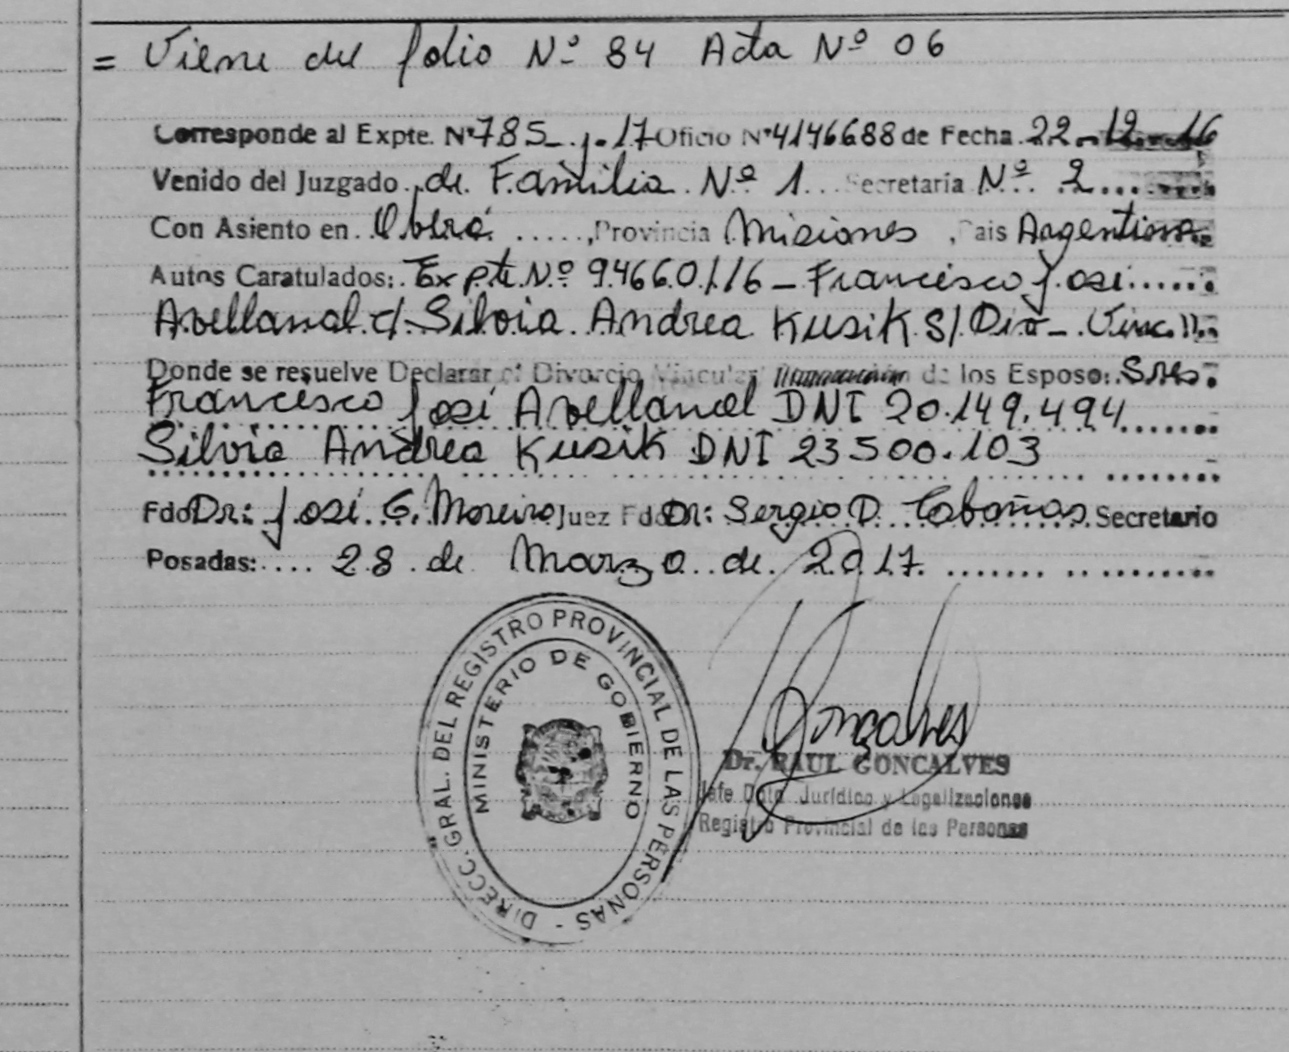 = Viene del folio Nº 84 Acta Nº 06
Corresponde al Expte. Nº 785_j-17 Oficio Nº 4146688 de Fecha 22-12-16
Venido del Juzgado de Familia Nº 1 Secretaría Nº 2
Con Asiento en Oberá, Provincia Misiones, Pais Argentina
Autos Caratulados: Expte. Nº 94660/16 - Francisco José
Avellanal c/ Silvia Andrea Kusik S/ Div- Vinc.
Donde se resuelve Declarar el Divorcio Vincular de los Esposo: Sres.
Francisco José Avellanal DNI 20.149.494
Silvia Andrea Kusik DNI 23500.103
Fdo Dr: José G. Moreiro Juez Fdo Dr: Sergio D. Cabañas Secretario
Posadas: 28 de Marzo de 2017.
DIRECC. GRAL. DEL REGISTRO PROVINCIAL DE LAS PERSONAS -
MINISTERIO DE GOBIERNO
Goncalves
Dr. RAUL GONCALVES
Jefe Dpto. Jurídico y Legalizaciones
Registro Provincial de las Personas